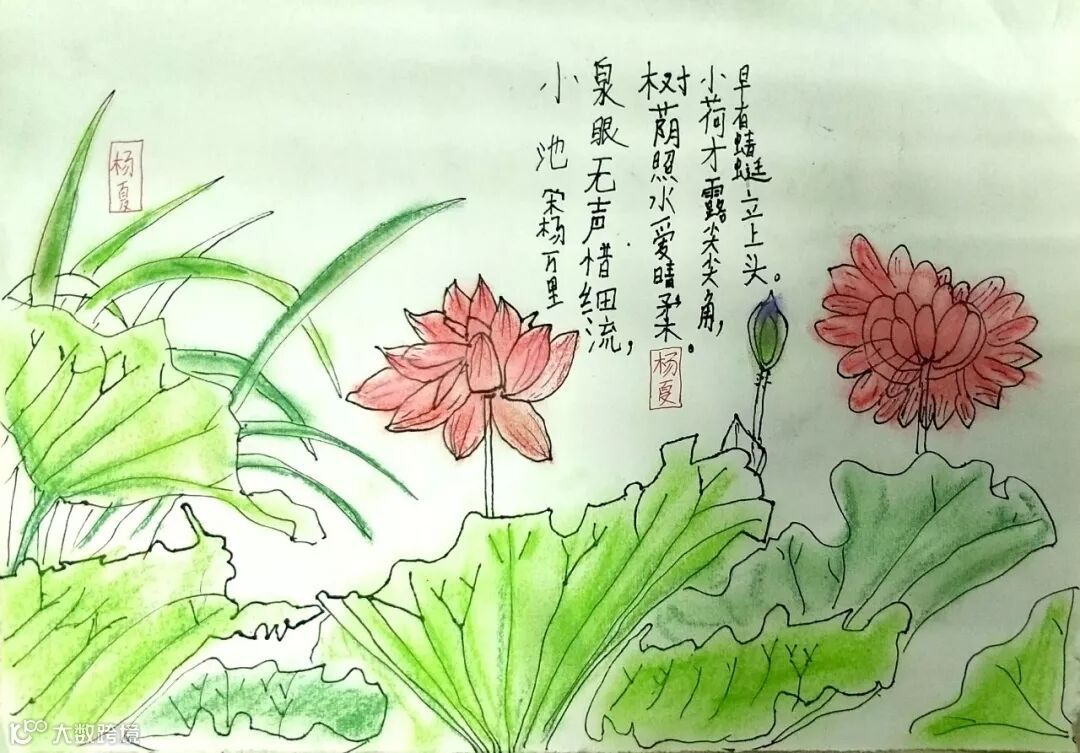 小池 宋杨万里
泉眼无声惜细流,
树荫照水爱晴柔。
小荷才露尖尖角,
早有蜻蜓立上头。
杨夏
杨夏
大数跨境